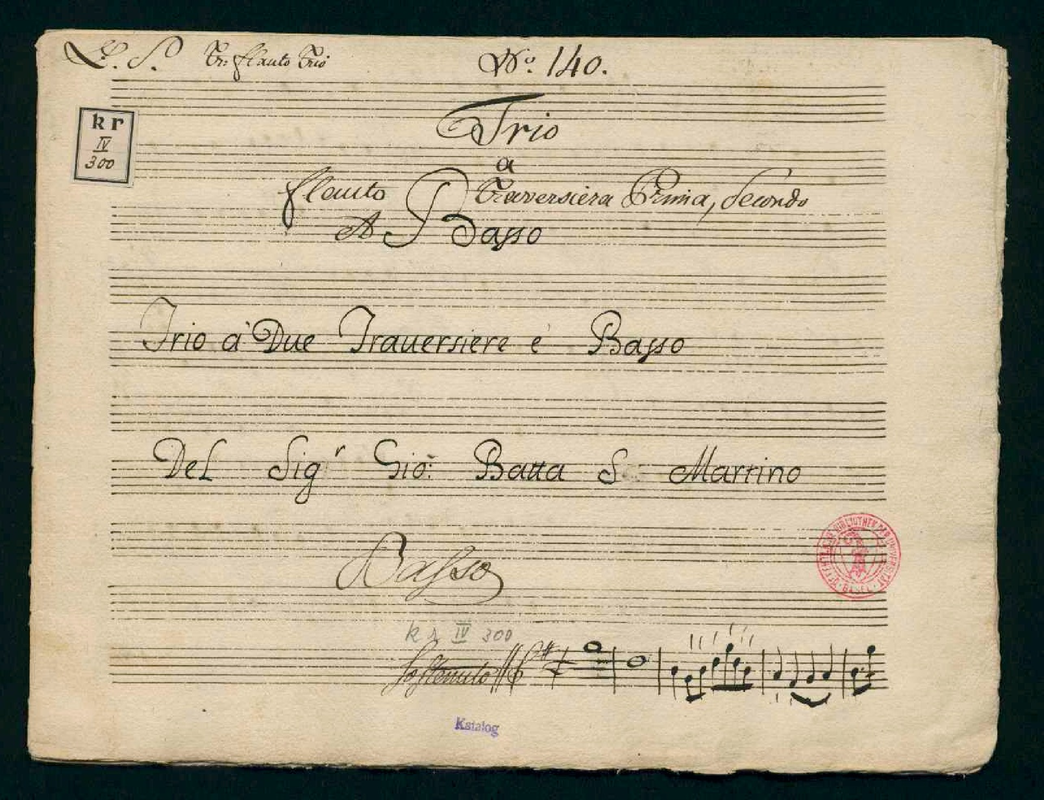 L. S. Tr: flauto Trio
No. 140.
kr
IV
300
Trio
a
flauto Traversiera Prima, Secondo
A Basso
Trio à Due Traversiere è Basso
Del Sigr Gio: Batta S. Martino
Basso
kr IV 300
Sostenuto
Katalog